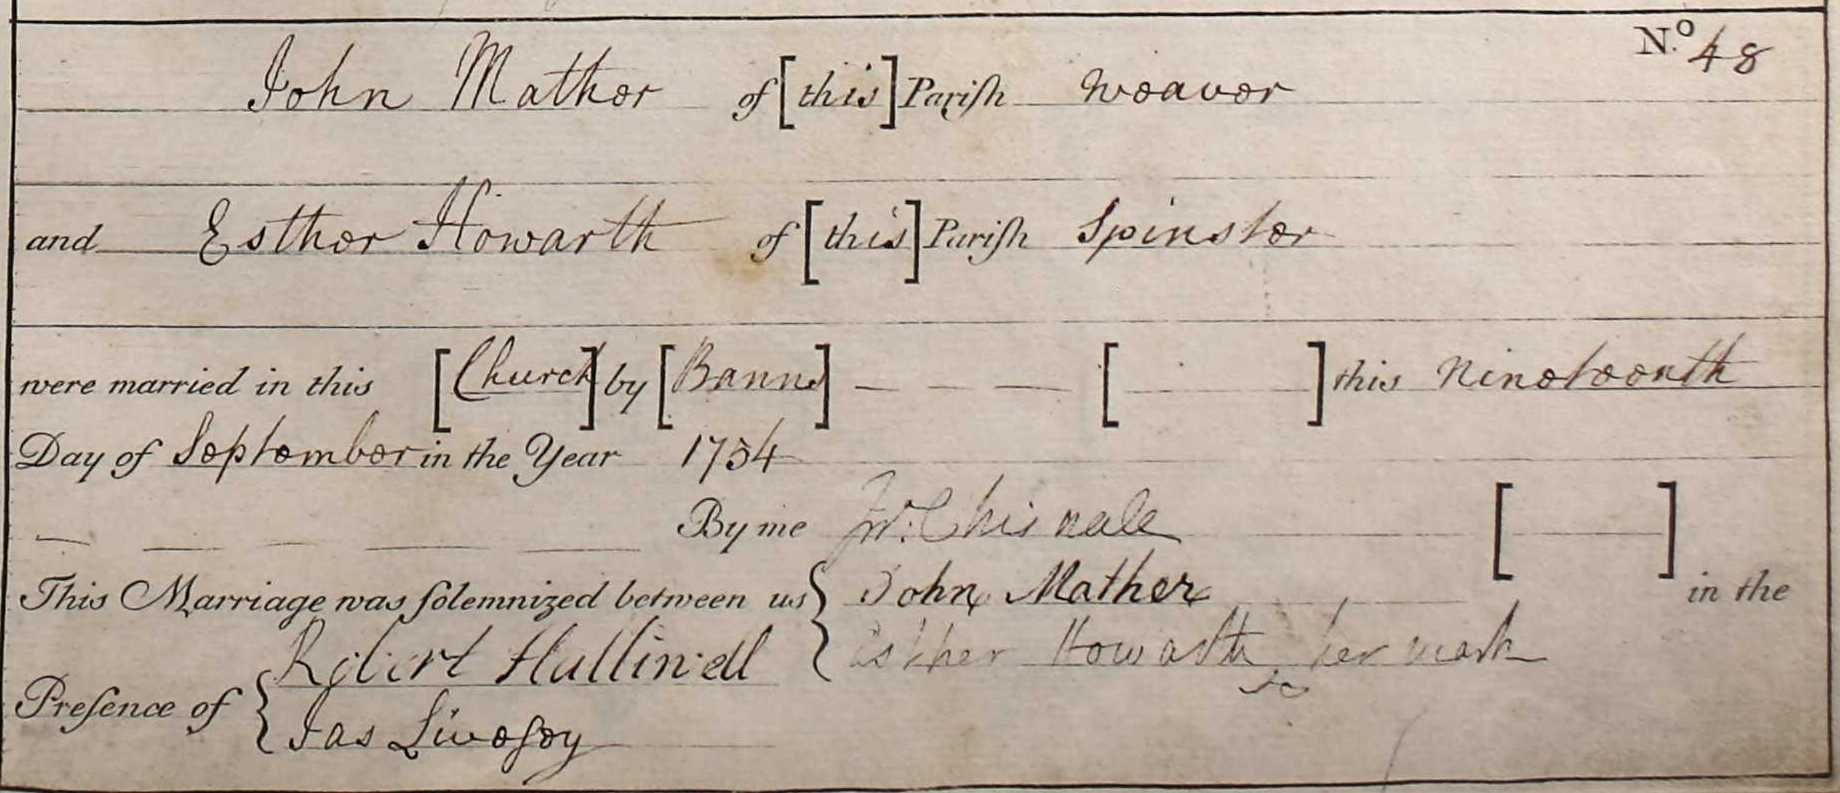 No. 48
John Mather of [this] Pariſh Weaver
and Esther Howarth of [this] Pariſh Spinster
were married in this [Church] by [Banns] — — — [ ] this Nineteenth
Day of September in the Year 1754
By me Wm. Chisnale [ ]
This Marriage was ſolemnized between us { John Mather in the
Esther Howarth her mark
Preſence of { Robert Halliwell
Jas Liveſey